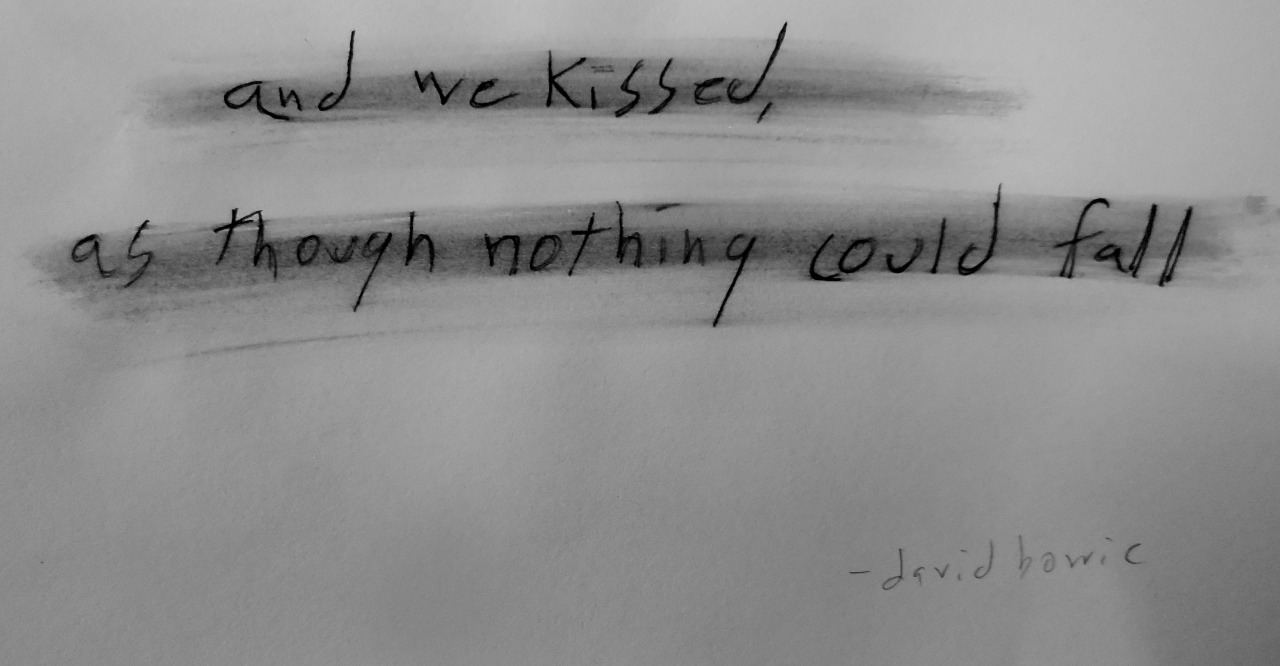 and we kissed,
as though nothing could fall
- david bowie